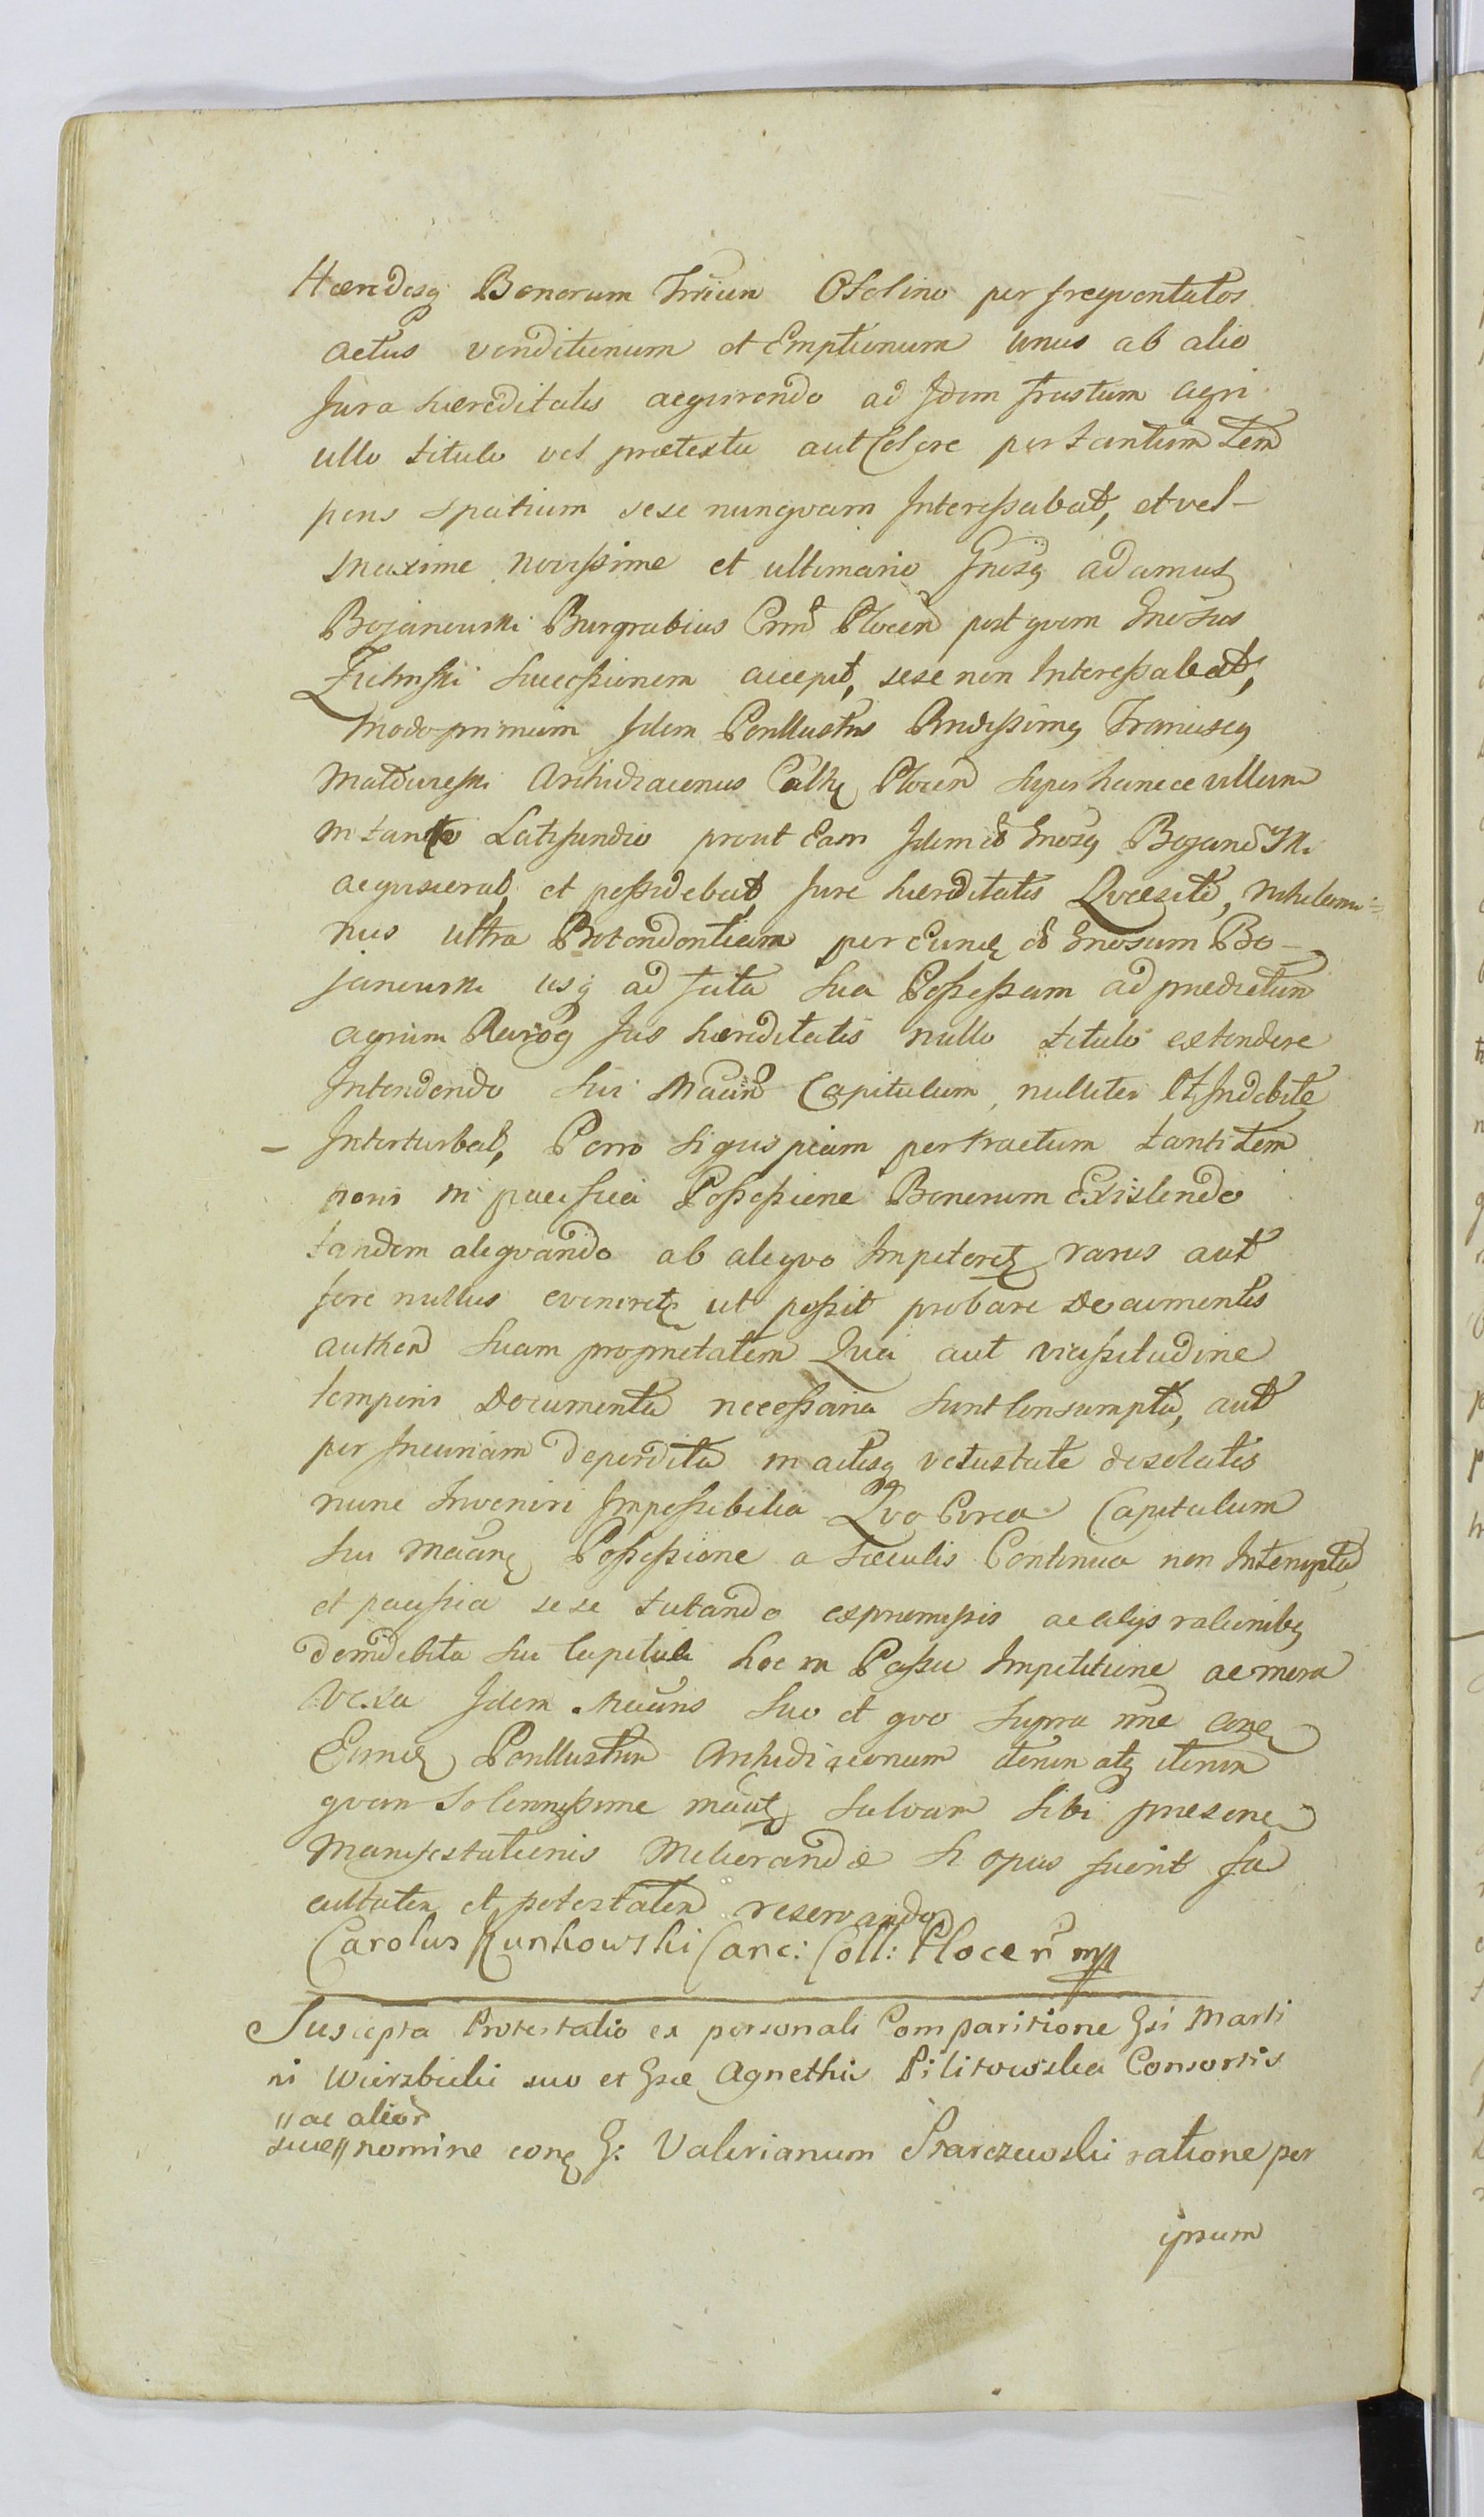 Hæredesq Bonorum Osolino per freqventatos
actus venditionum et Emptionum unus ab alio
Jura hæreditatis acqvirendo ad Idem frustum agri
ullo titulo vel prætextu aut Colore per tantum tem
poris spatium sese nunqvam Interessabat, et vel-
maxime novissime et ultimario Gnosq Adamus
Bojanowski Burgrabius Plocen post qvam Gnosus
Successionem accepit, sese non Interessabat,
Modo primum Idem Perillustris Rndissimq Franciscq
Archidiaconus Cathe Plocen super hancce villam
in tanto Latifundio prout Eam Idem Gnosq Bojanowski
acqvisierat et possidebat Jure hæreditatis Qvæsite, nihilomi=
nus ultra per Eund Gnosum Bo-
janowski usq ad fata sua Possessam ad prædictum
agrum Jus hæreditatis nullo titulo extendere
Intendendo sui Capitulum, nulliter et Indebite
- Interturbat, Porro si quispiam per tractum tanti tem
poris in pacifica Possessione Bonorum Existendo
tandem aliqvando ab aliqvo Impeteretr rarus aut
fere nullus eveniretr ut possit probare Documentis
authen suam proprietatem Qvia aut vicissitudine
temporis Documenta necessaria sunt Consumpta, aut
per Incuriam deperdita in actisq vetustate desolatis
nunc Inveniri Impossibilia Qvo Circa Capitulum
sui Possessione a sæculis Continua non Interrupta
et pacifica sese tutando ex præmissis ac alijs rationibq
de Indebita sui Capituli hoc in Passu Impetitione ac mera
vexa Idem suo et qvo supra nne cone
Eund Perillustrem Archidiaconum iterum atq iterum
qvam Solennissime salvam sibi præsenc
Manifestationis Meliorandæ si opus fuerit fa
cultatem et potestatem reservando
Carolus Kunkowski Canc: Coll: Plocen mp
Suscepta Protestatio ex personali Comparitione Gsi Marti
ni Wierzbicki suo et Gsæ Agnethis Pilitowska Consortis
"ac alior
suæ" nomine cone G: Valerianum Starczewski ratione per
ipsum